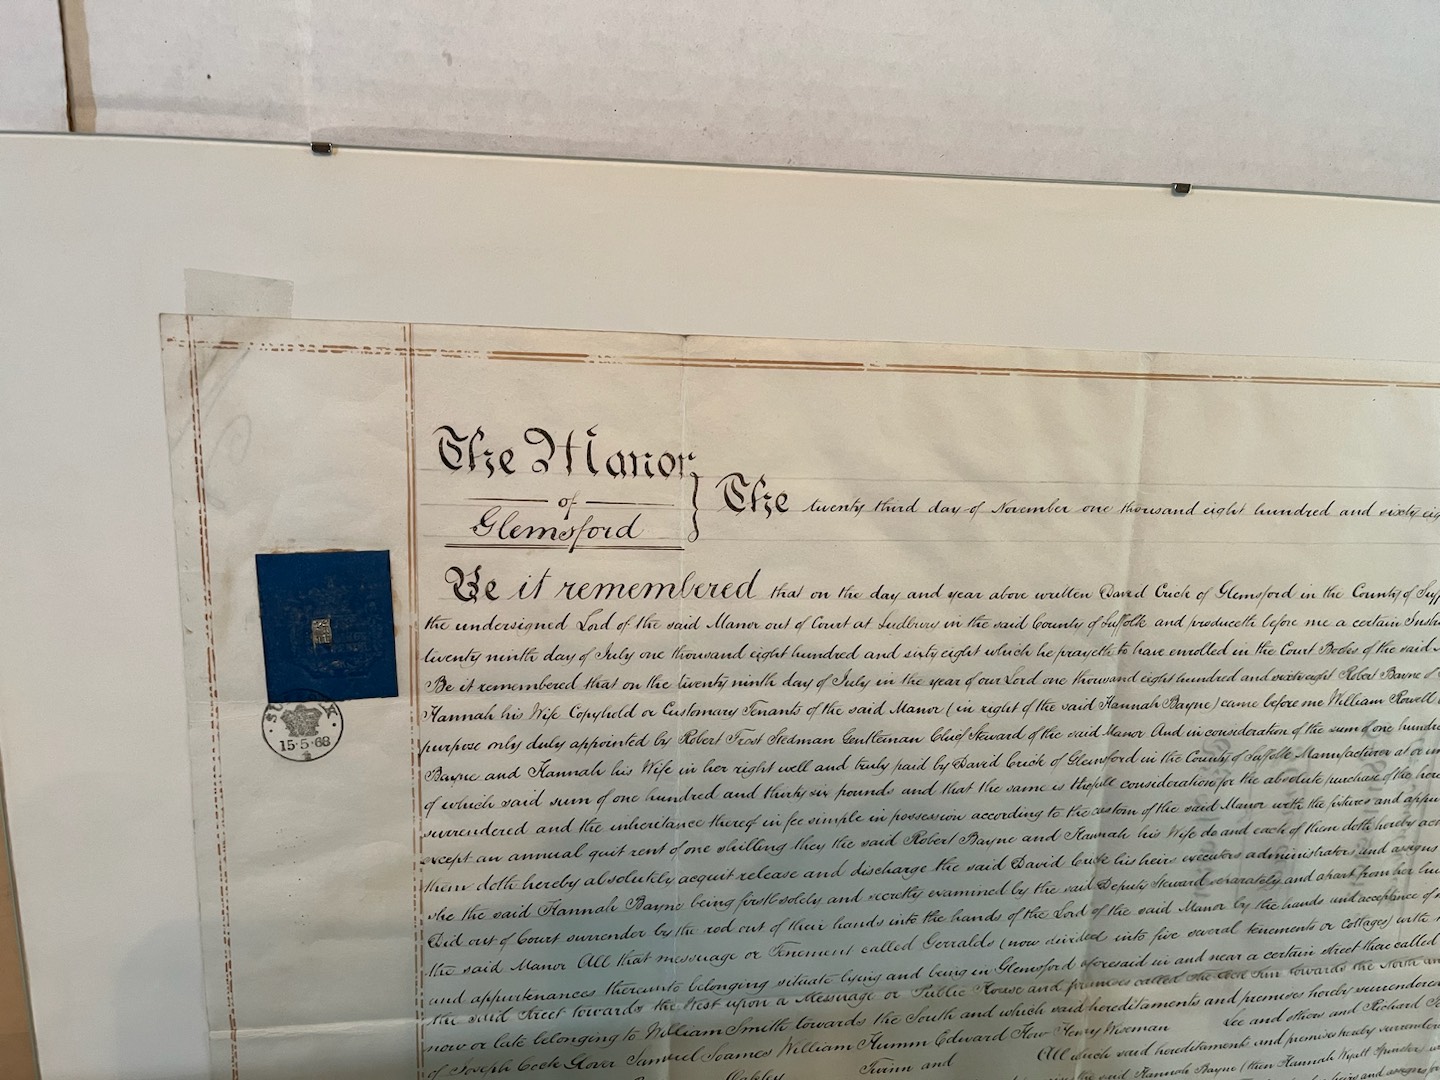 The Manor
of
Glemsford
The twenty third day of November one thousand eight hundred and sixty
Be it remembered that on the day and year above written David Crick of Glemsford in the County of
the undersigned Lord of the said Manor out of Court at Sudbury in the said County of Suffolk and produceth before me a certain
twenty ninth day of July one thousand eight hundred and sixty eight which he prayeth to have enrolled in the Court Books of the said
Be it remembered that on the twenty ninth day of July in the year of our Lord one thousand eight hundred and sixty eight Robert Bayne of
Hannah his Wife Copyhold or Customary Tenants of the said Manor (in right of the said Hannah Bayne) came before me William Rowell
purpose only duly appointed by Robert Frost Stedman Gentleman Chief Steward of the said Manor And in consideration of the sum of one
Bayne and Hannah his Wife in her right well and truly paid by David Crick of Glemsford in the County of Suffolk Manufacturer at or
of which said sum of one hundred and thirty six pounds and that the same is the full consideration for the absolute purchase of the
surrendered and the inheritance thereof in fee simple in possession according to the custom of the said Manor with the fixtures and
except an annual quit rent of one shilling they the said Robert Bayne and Hannah his Wife do and each of them doth hereby
them doth hereby absolutely acquit release and discharge the said David Crick his heirs executors administrators and assigns
she the said Hannah Bayne being first solely and secretly examined by the said Deputy Steward separately and apart from her
Did out of Court surrender by the rod out of their hands into the hands of the Lord of the said Manor by the hands and acceptance of
the said Manor All that messuage or Tenement called Gerralds (now divided into five several tenements or cottages) with
and appurtenances thereunto belonging situate lying and being in Glemsford aforesaid in and near a certain street there called
the said street towards the West upon a Messuage or Public House and premises called the Cock Inn towards the North and
now or late belonging to William Smith towards the South and which said hereditaments and premises hereby surrendered
of Joseph Cook Glover Samuel Soames William Humm Edward How Henry Wordman Lee and others and Richard
Oakley Twinn and All which said hereditaments and premises hereby
the said Hannah Bayne (then Hannah Wyatt Spinster)
15·5·68